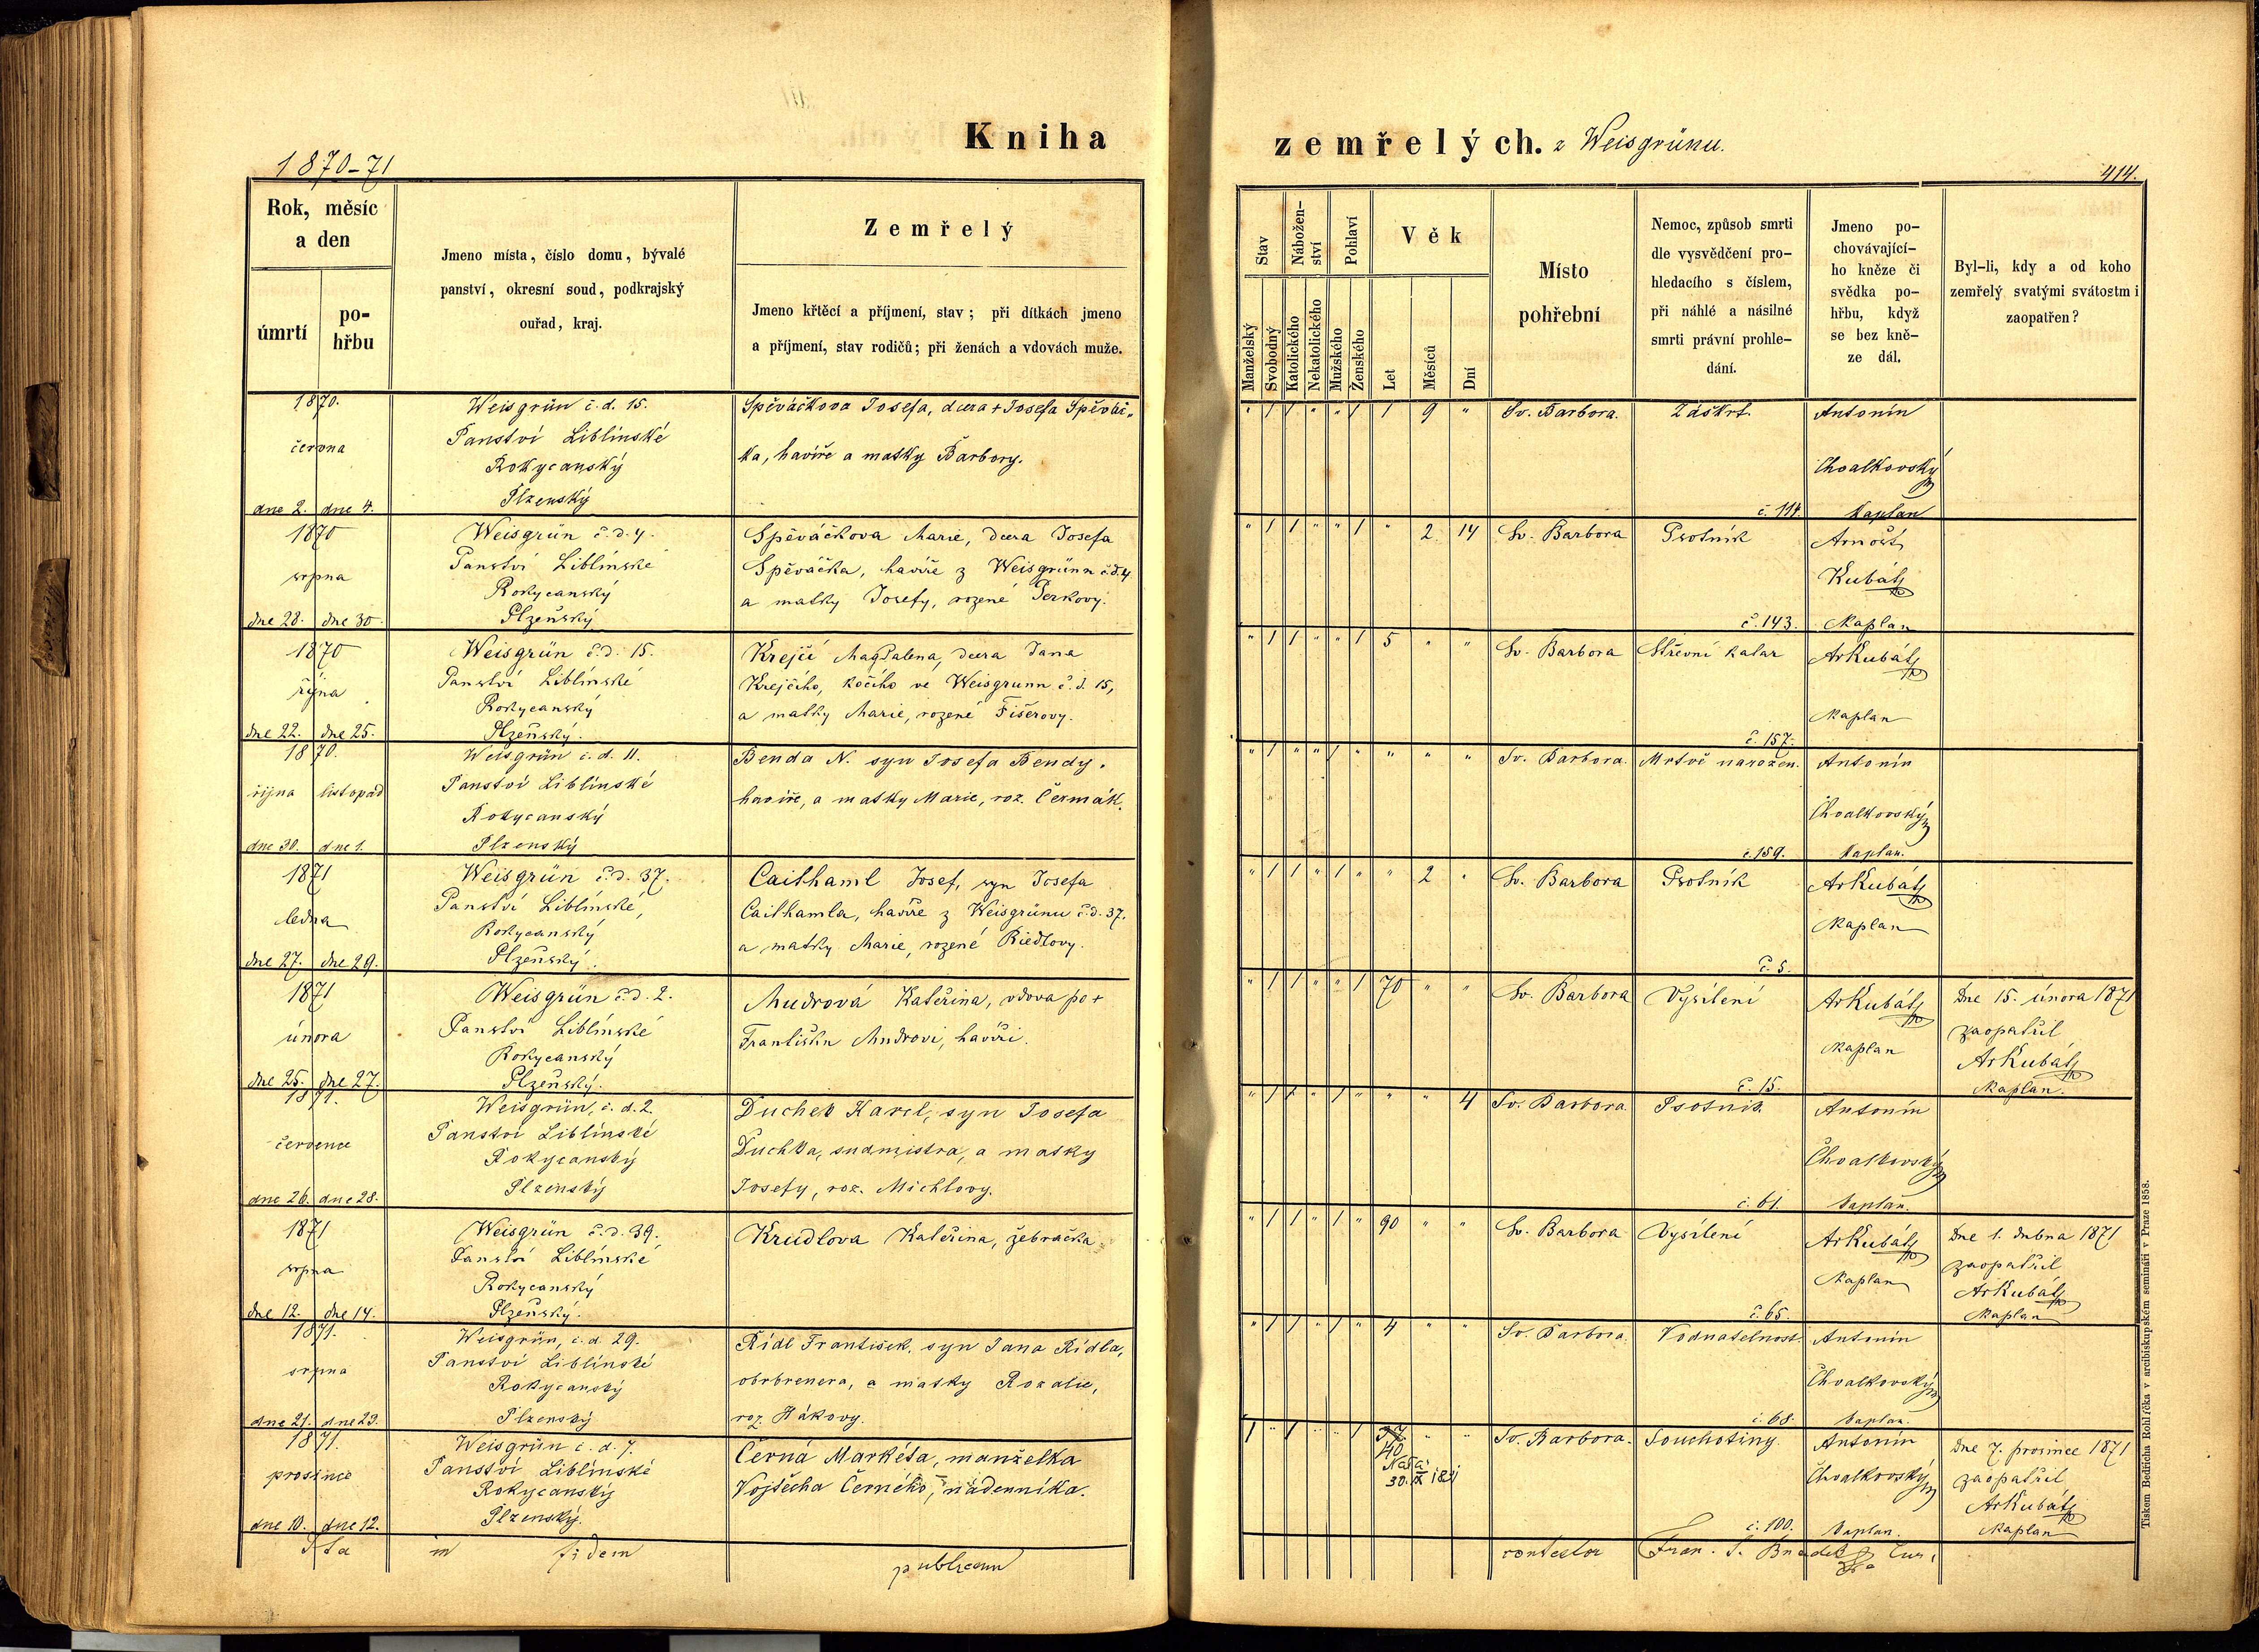 Kniha
zemřelých. z Weisgrünu.
1870-71
414.
Rok, měsíc
a den
úmrtí
po-
hřbu
Jmeno místa, číslo domu, bývalé
panství, okresní soud, podkrajský
ouřad, kraj.
Zemřelý
Jmeno křtěcí a příjmení, stav; při dítkách jmeno
a příjmení, stav rodičů; při ženách a vdovách muže.
Stav
Nábožen-
ství
Pohlaví
Věk
Manželský
Svobodný
Katolického
Nekatolického
Mužského
Ženského
Let
Měsíců
Dní
Místo
pohřební
Nemoc, způsob smrti
dle vysvědčení pro-
hledacího s číslem,
při náhlé a násilné
smrti právní prohle-
dání.
Jmeno po-
chovávající-
ho kněze či
svědka po-
hřbu, když
se bez kně-
ze dál.
Byl-li, kdy a od koho
zemřelý svatými svátostmi
zaopatřen?
1870.
června
dne 2. dne 4.
Weisgrün č. d. 15.
Panství Liblínské
Rokycanský
Plzenský
Spěváčkova Josefa, dcera + Josefa Spěváč„
ka, havíře a matky Barbory.
" 1 1 " " 1 1 9 "
Sv. Barbora.
Záškrt.
č. 114.
Antonín
Chvalkovský
Kaplan
1870
srpna
dne 28. dne 30.
Weisgrün č. d. 4.
Panství Liblínské
Rokycanský
Plzeňský
Spěváčkova Marie, dcera Josefa
Spěváčka, havíře z Weisgrünn č.d. 4
a matky Josefy, rozené Perkovy.
" 1 1 " " 1 " 2 14
Sv. Barbora
Psotník
č. 143.
Arnošt
Kubát
Kaplan
1870
října
dne 22. dne 25.
Weisgrün č.d. 15.
Panství Liblínské
Rokycanský
Plzeňský.
Krejčí Magdalena, dcera Jana
Krejčího, kočího ve Weisgrunn č. d. 15,
a matky Marie, rozené Fišerovy.
" 1 1 " " 1 5 " "
Sv. Barbora
Střevní katar
č. 157.
ArKubát
Kaplan
1870.
října listopad
dne 30. dne 1.
Weisgrün č. d. 11.
Panství Liblínské
Rokycanský
Plzenský
Benda N. syn Josefa Bendy.
havíře, a matky Marie, roz. Čermák.
" 1 " " 1 " " " "
Sv. Barbora.
Mrtvě narozen.
č. 159.
Antonín
Chvalkovský
Kaplan.
1871
ledna
dne 27. dne 29.
Weisgrün č.d. 37.
Panství Liblínské,
Rokycanský
Plzeňský.
Caithaml Josef, syn Josefa
Caithamla, havíře z Weisgrünu č.d. 37.
a matky Marie, rozené Riedlovy.
" 1 1 " 1 " " 2 "
Sv. Barbora
Psotník
č. 5.
ArKubát
Kaplan
1871
února
dne 25. dne 27.
Weisgrün č.d. 2.
Panství Liblínské
Rokycanský
Plzeňský.
Mudrová Kateřina, vdova po +
Františku Mudrovi, havíři.
" 1 1 " " 1 70 " "
Sv. Barbora
Vysílení
č. 15.
ArKubát
Kaplan
Dne 15. února 1871
zaopatřil
ArKubát
Kaplan.
1871.
července
dne 26. dne 28.
Weisgrün, č. d. 2.
Panství Liblínské
Rokycanský
Plzenský
Duchek Karel, syn Josefa
Duchka, sudmistra, a matky
Josefy, roz. Michlovy.
" 1 1 " 1 " " " 4
Sv. Barbora.
Psotník.
č. 61.
Antonín
Chvalkovský
Kaplan.
1871
srpna
dne 12. dne 14.
Weisgrün č.d. 39.
Panství Liblínské
Rokycanský
Plzeňský.
Krudlova Kateřina, žebračka
" 1 1 " 1 " 90 " "
Sv. Barbora
Vysílení
č. 65.
ArKubát
Kaplan
Dne 1. dubna 1871
zaopatřil
ArKubát
Kaplan
1871.
srpna
dne 21. dne 23.
Weisgrün, č. d. 29.
Panství Liblínské
Rokycanský
Plzenský
Rídl František, syn Jana Rídla,
a matky Rozalie,
roz. Hákovy.
" 1 1 " 1 " 4 " "
Sv. Barbora.
Vodnatelnost
č. 68.
Antonín
Chvalkovský
Kaplan.
1871.
prosince
dne 10. dne 12.
Weisgrün č. d. 7.
Panství Liblínské
Rokycanský
Plzenský.
Černá Markéta, manželka
Vojtěcha Černého, nádenníka.
1 " 1 " " 1 " "
40
Sv. Barbora.
Souchotiny.
č. 100.
Antonín
Chvalkovský
Kaplan.
Dne 7. prosince 1871
zaopatřil
ArKubát
Kaplan
Ita in fidem publicam
contestor
Tiskem Bedřicha Rohlíčka v arcibiskupském semináři v Praze 1858.